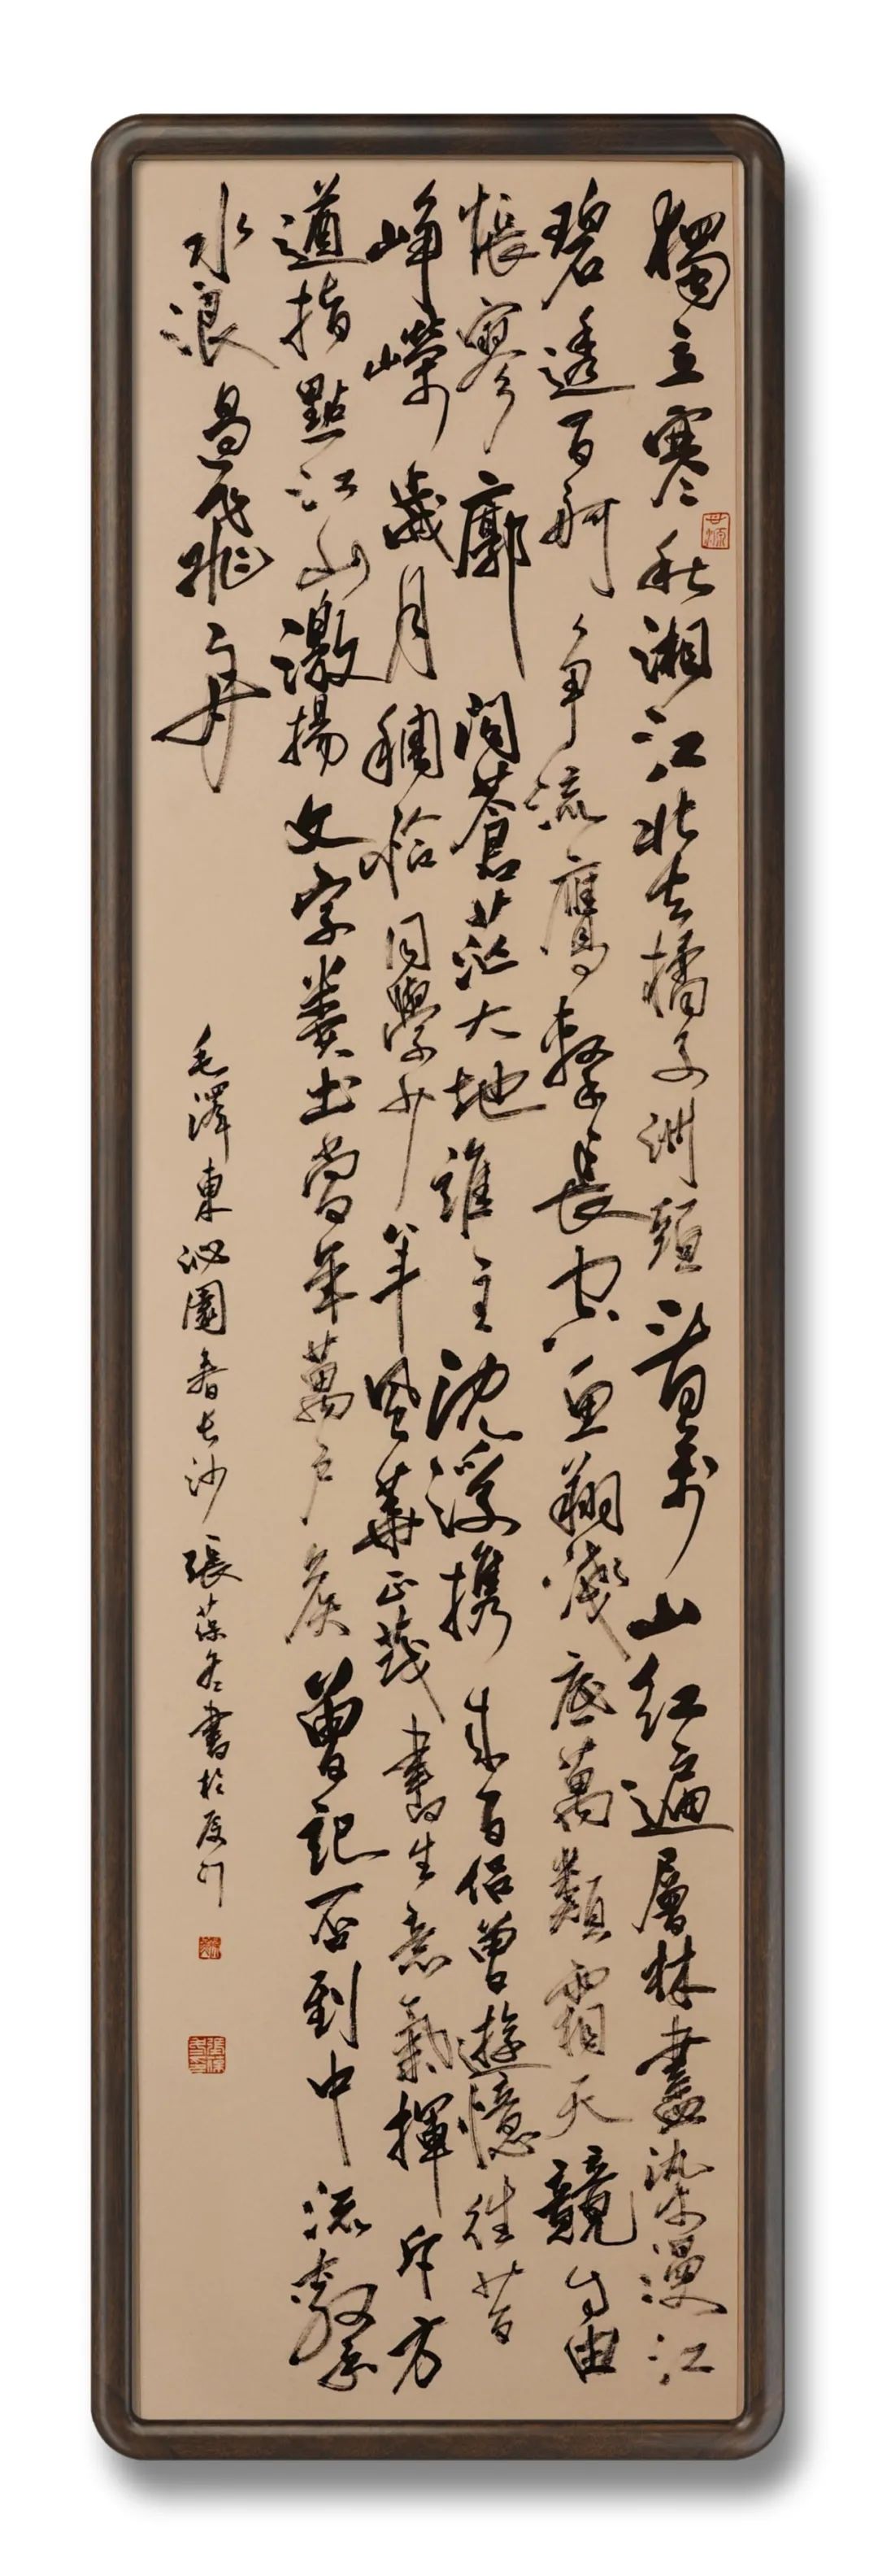 獨立寒秋湘江北去橘子洲頭看萬山紅遍層林盡染漫江
碧透百舸争流鷹擊長空魚翔淺底萬類霜天競自由
悵寥廓問蒼茫大地誰主沈浮携來百侣曾遊憶往昔
崢嶸歲月稠恰同學少年風華正茂書生意氣揮斥方
遒指點江山激揚文字糞土當年萬戶矦曾記否到中流擊
水浪遏飛舟
毛澤東沁園春長沙張葆冬書於厦門